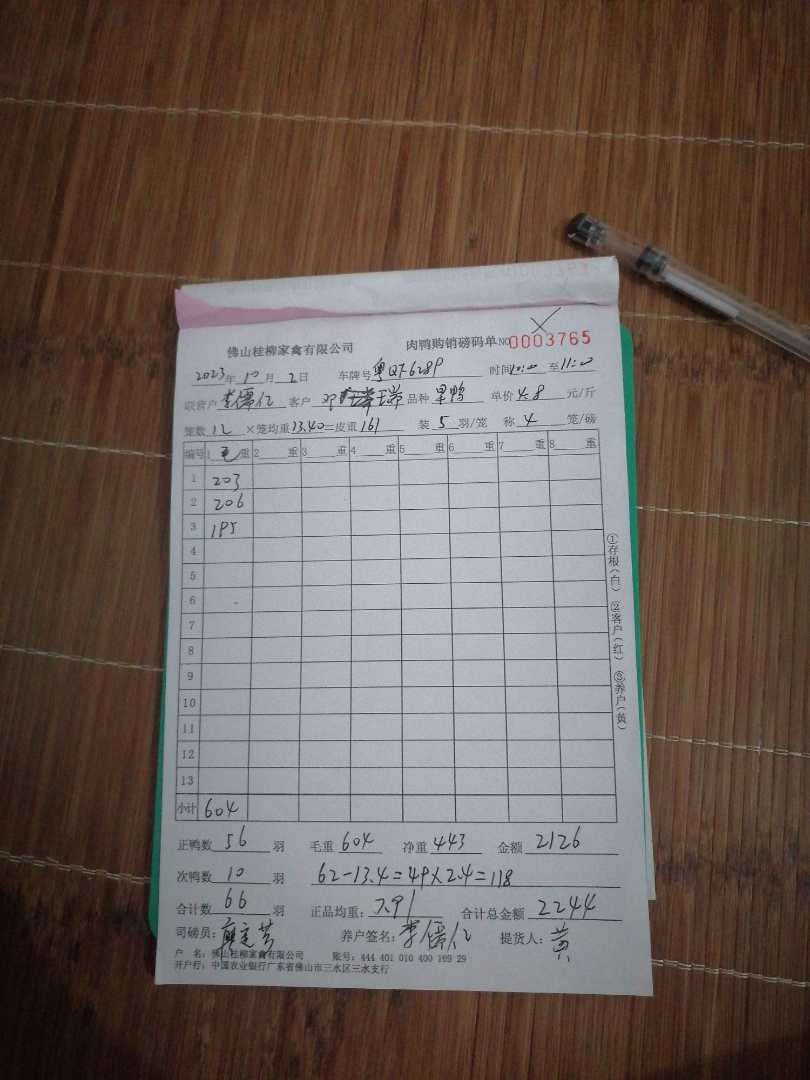 佛山桂柳家禽有限公司 肉鸭购销磅码单 NO 0003765
2023年10月2日 车牌号 粤 时间10:00至11:00
联营户 李儒亿 客户 邓 品种 旱鸭 单价 4.8 元/斤
笼数 12 ×笼均重 13.40=皮重 161 装 5 羽/笼 称 4 笼/磅
编号 1 毛 重 2 重 3 重 4 重 5 重 6 重 7 重 8 重
1 203
2 206
3 195
4
5
6
7
8
9
10
11
12
13
小计 604
①存根(白) ②客户(红) ③养户(黄)
正鸭数 56 羽 毛重 604 净重 443 金额 2126
次鸭数 10 羽 62-13.4=49×2.4=118
合计数 66 羽 正品均重: 7.91 合计总金额 2244
司磅员: 养户签名: 李儒亿 提货人: 黄
户 名: 佛山桂柳家禽有限公司 账号: 444 401 010 400 169 29
开户行: 中国农业银行广东省佛山市三水区三水支行